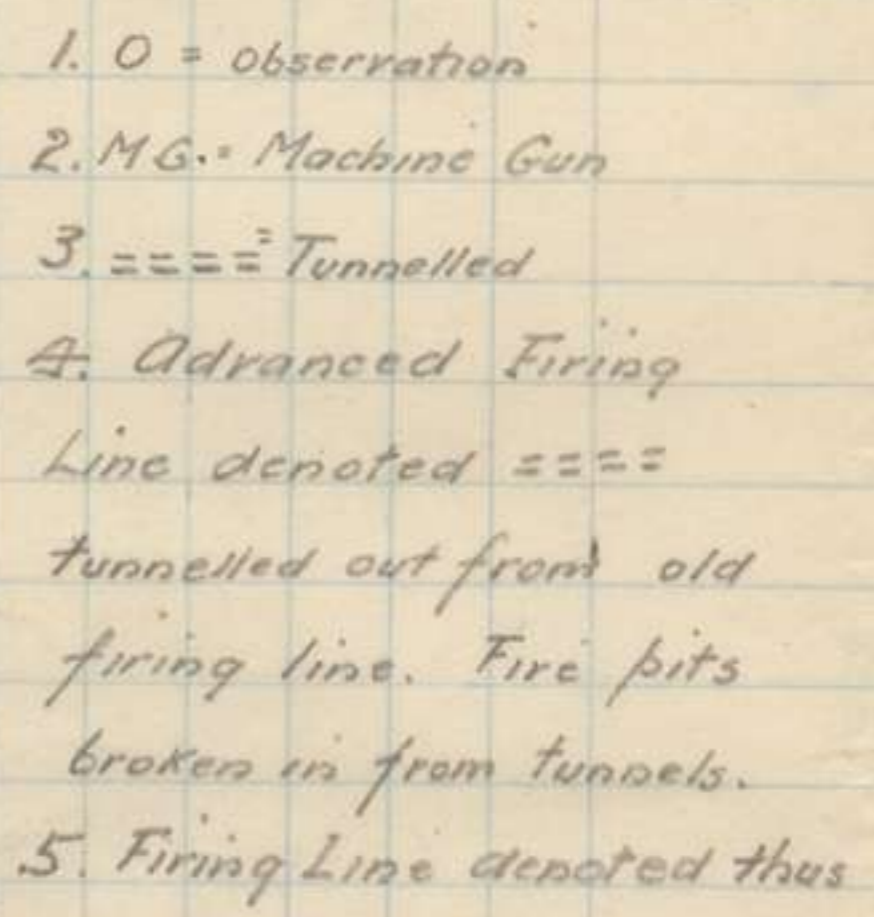 1. O = observation
2. M G. = Machine Gun
3. ==== = Tunnelled
4. Advanced Firing
Line denoted ====
tunnelled out from old
firing line. Fire pits
broken in from tunnels.
5. Firing Line denoted thus